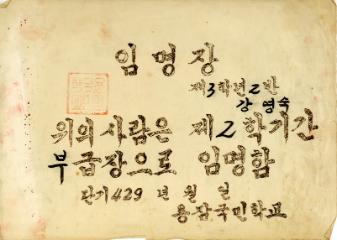 임명장
제3학년2반
강영숙
위의 사람은 제2학기간
부급장으로 임명함
단기429 년 월 일
용담국민학교